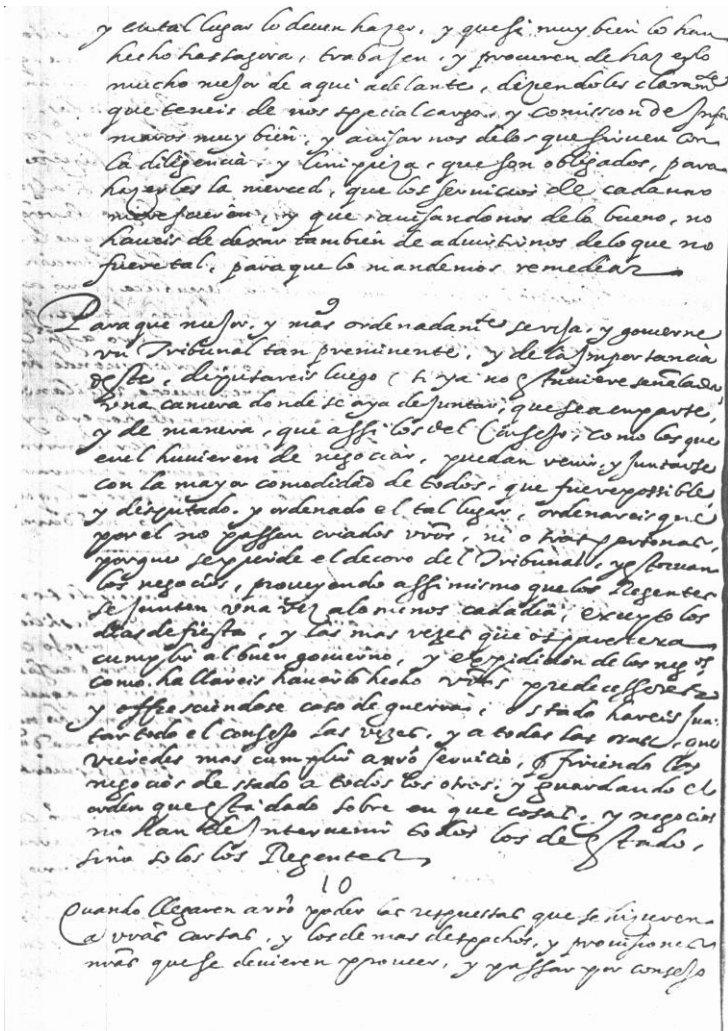 y en tal lugar lo deven hazer, y que si muy bien lo han
hecho hastagora, trabajen, y procuren de hazerlo
mucho mejor de aqui adelante, diziendoles claramte
que teneis de nos special cargo, y comission de Infor
maros muy bien, y avisar nos delos que sirven con
la diligencia, y limpieza, que son obligados, para
hazerles la merced, que los servicios de cada uno
merescieren, y que avisandonos delo bueno, no
haveis de dexar tambien de advirtirnos delo que no
fuere tal, para que lo mandemos remediar
9
Para que mejor, y mas ordenadamte se rija, y governe
un Tribunal tan preminente, y de la Importancia
deste, diputareis luego (si ya no estuviere señalada)
una camera donde se aya de juntar, que sea en parte,
y de manera, que assi los del Consejo, como los que
en el huvieren de negociar, puedan venir, y juntarse
con la mayor comodidad de todos, que fuere possible,
y disputado, y ordenado el tal lugar, ordenareis que
por el no passen criados vros, ni otras personas,
porque se pierde el decoro del Tribunal, y estorvan
los negocios, proveyendo assimismo que los Regentes
se junten una vez alo menos cada dia, excepto los
dias de fiesta, y las mas vezes que os paresciera
cumplir al buen governo, y expidicion de los negos
como hallareis haverlo hecho vros predecessores
y offresciendose caso de guerra, o stado hareis jun
tar todo el consejo las vezes, y a todas las oras, que
vieredes mas cumplir a nro servicio, prefiriendo los
negocios de stado a todos los otros, y guardando el
orden que está dado sobre en que cosas, y negocios
no han de Intervenir todos los de Estado,
sino solos los Regentes
10
Quando llegaren a vro poder las respuestas que se hizieren
a vras cartas, y los demas despachos, y provisiones
nras que se devieren proveer, y passar por consejo